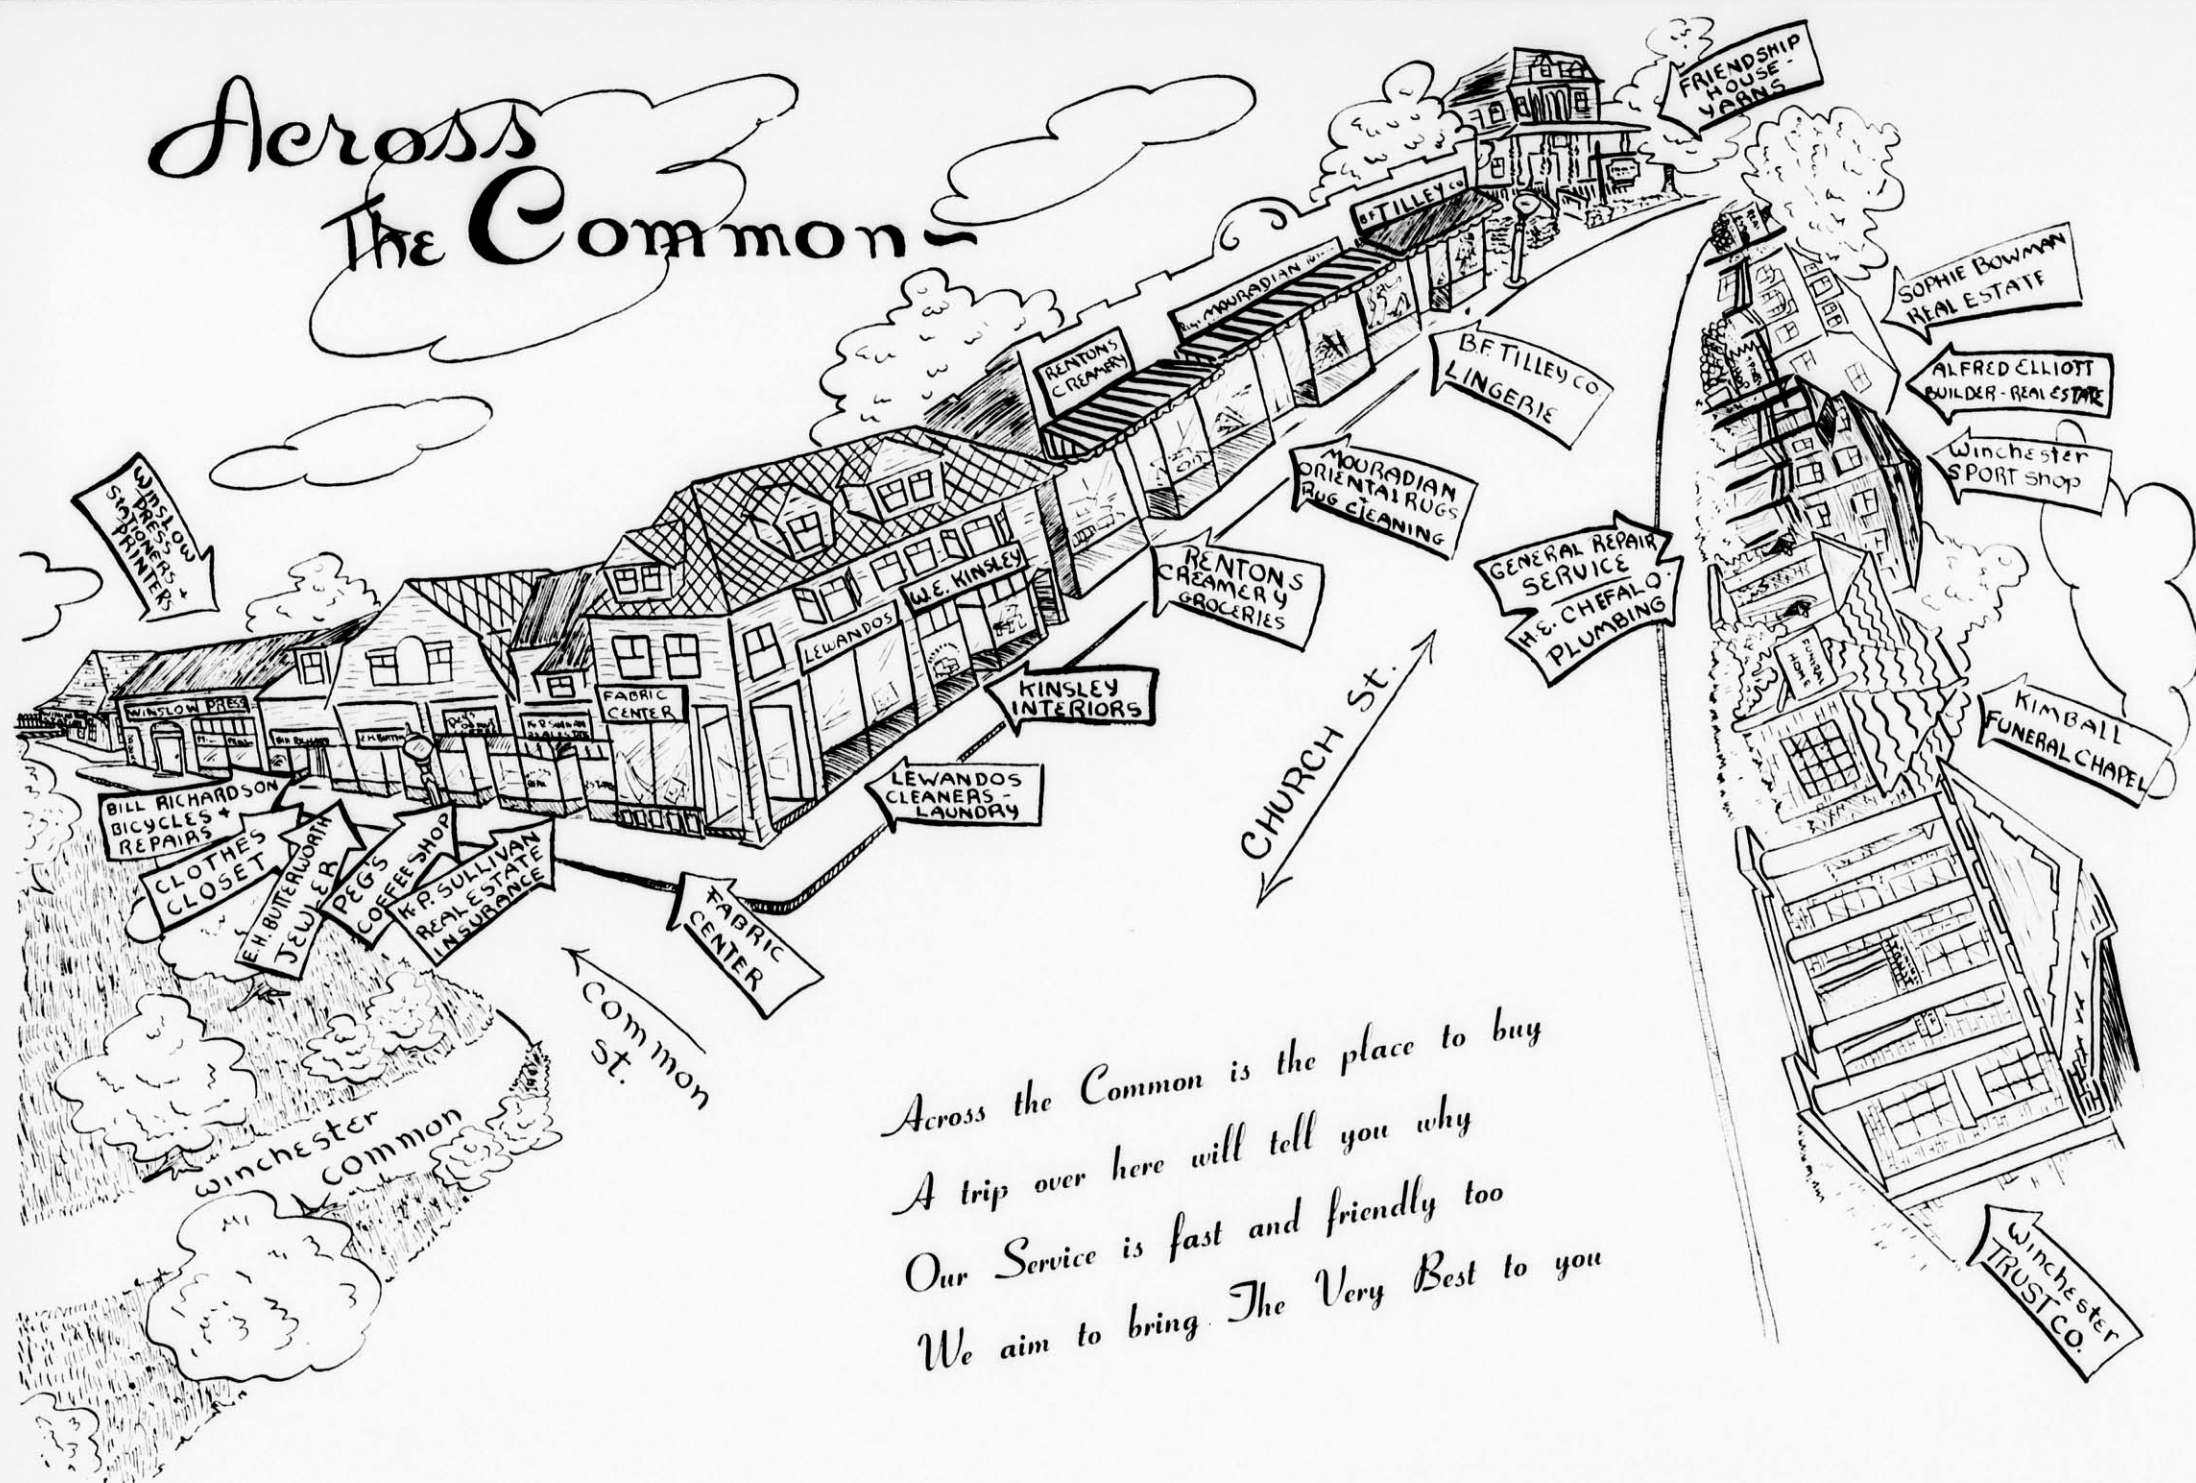 Across
The Common -
FRIENDSHIP
HOUSE -
YARNS
B.F. TILLEY CO
MOURADIAN
RENTONS
CREAMERY
SOPHIE BOWMAN
REAL ESTATE
ALFRED ELLIOTT
BUILDER - REAL ESTATE
Winchester
SPORT Shop
B.F. TILLEY CO.
LINGERIE
MOURADIAN
ORIENTAL RUGS
+
RUG CLEANING
RENTONS
CREAMERY
GROCERIES
GENERAL REPAIR
SERVICE
H.E. CHEFALO.
PLUMBING
WINSLOW
PRESS
STATIONERS +
PRINTERS
W.E. KINSLEY
LEWANDOS
FABRIC
CENTER
WINSLOW PRESS
KINSLEY
INTERIORS
LEWANDOS
CLEANERS -
LAUNDRY
FUNERAL
HOME
KIMBALL
FUNERAL CHAPEL
CHURCH St.
BILL RICHARDSON
BICYCLES +
REPAIRS
CLOTHES
CLOSET
E.H. BUTTERWORTH
JEWLER
PEG'S
COFFEE SHOP
K.P. SULLIVAN
REAL ESTATE
INSURANCE
FABRIC
CENTER
COMMON
St.
Winchester
COMMON
Across the Common is the place to buy
A trip over here will tell you why
Our Service is fast and friendly too
We aim to bring The Very Best to you
Winchester
TRUST CO.